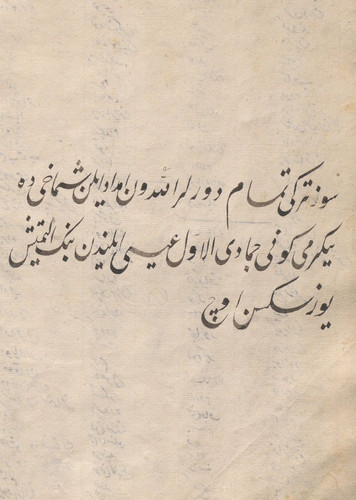 سوز ترکی تمام دورلر اللهدون امداد ایلن شماخی ده
یکرمی کونی جمادی الاول عیسی ایلیندن بنک التمیش
یوز سکسن اوچ